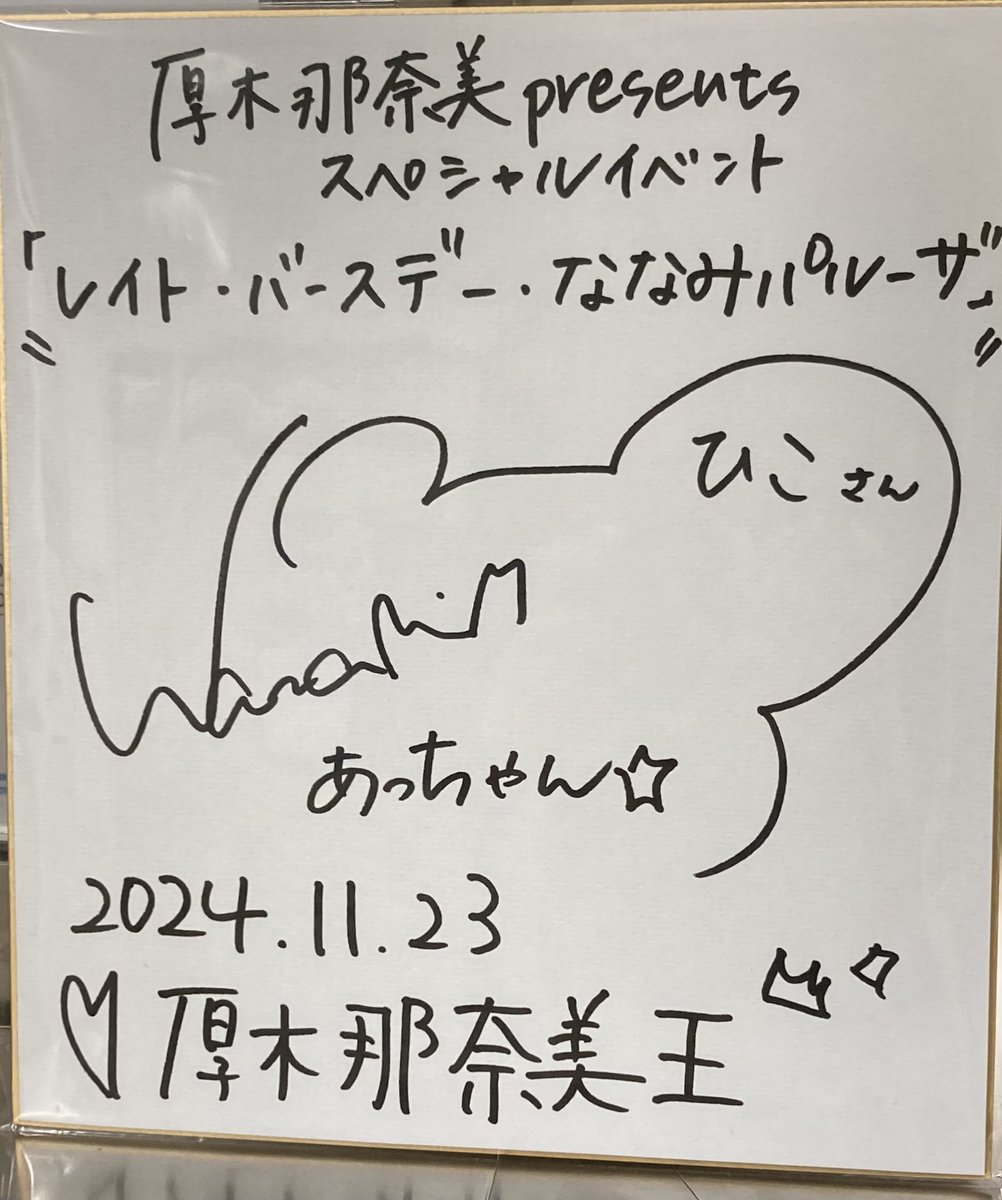 厚木那奈美presents
スペシャルイベント
『レイト・バースデー・ななみパルーザ』
ひこさん
Nanami
あっちゃん☆
2024.11.23
♡厚木那奈美王